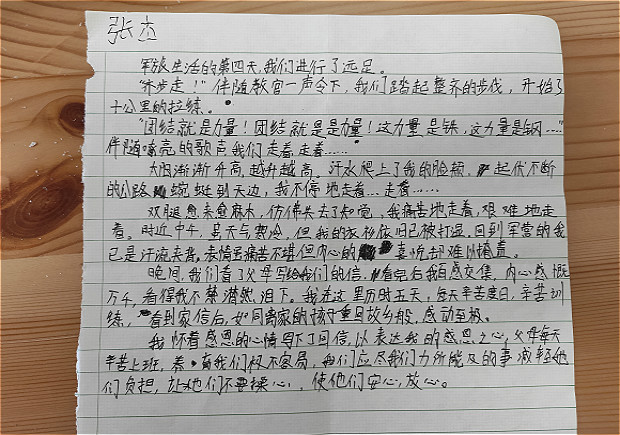 张杰
军旅生活的第四天,我们进行了远足。
“齐步走!”伴随教官一声令下,我们踏起整齐的步伐,开始了
十公里的拉练。
“团结就是力量!团结就是是力量!这力量是铁,这力量是钢……”
伴随嘹亮的歌声我们走着,走着……
太阳渐渐升高,越升越高。汗水爬上了我的脸颊,起伏不断
的公路蜿蜒到天边,我不停地走着…走着……
双腿愈来愈麻木,仿佛失去了知觉,我痛苦地走着,艰难地走
着。时近中午,虽天气寒冷,但我的衣衫依旧已被打湿。回到军营的我
已是汗流夹背。表情虽痛苦不堪但内心的喜悦却难以掩盖。
晚间,我们看了父母写给我们的信。看完后我百感交集,内心感慨
万千,看得我不禁潸然泪下。我在这里历时五天,每天辛苦度日,辛苦训
练,看到家信后,如同离家的孩子重回故乡般,感动至极。
我怀着感恩的心情写下了回信,以表达我的感恩之心,父母每天
辛苦上班,养育我们极不容易,我们应尽我们力所能及的事减轻他
们负担,让他们不要操心,使他们安心,放心。